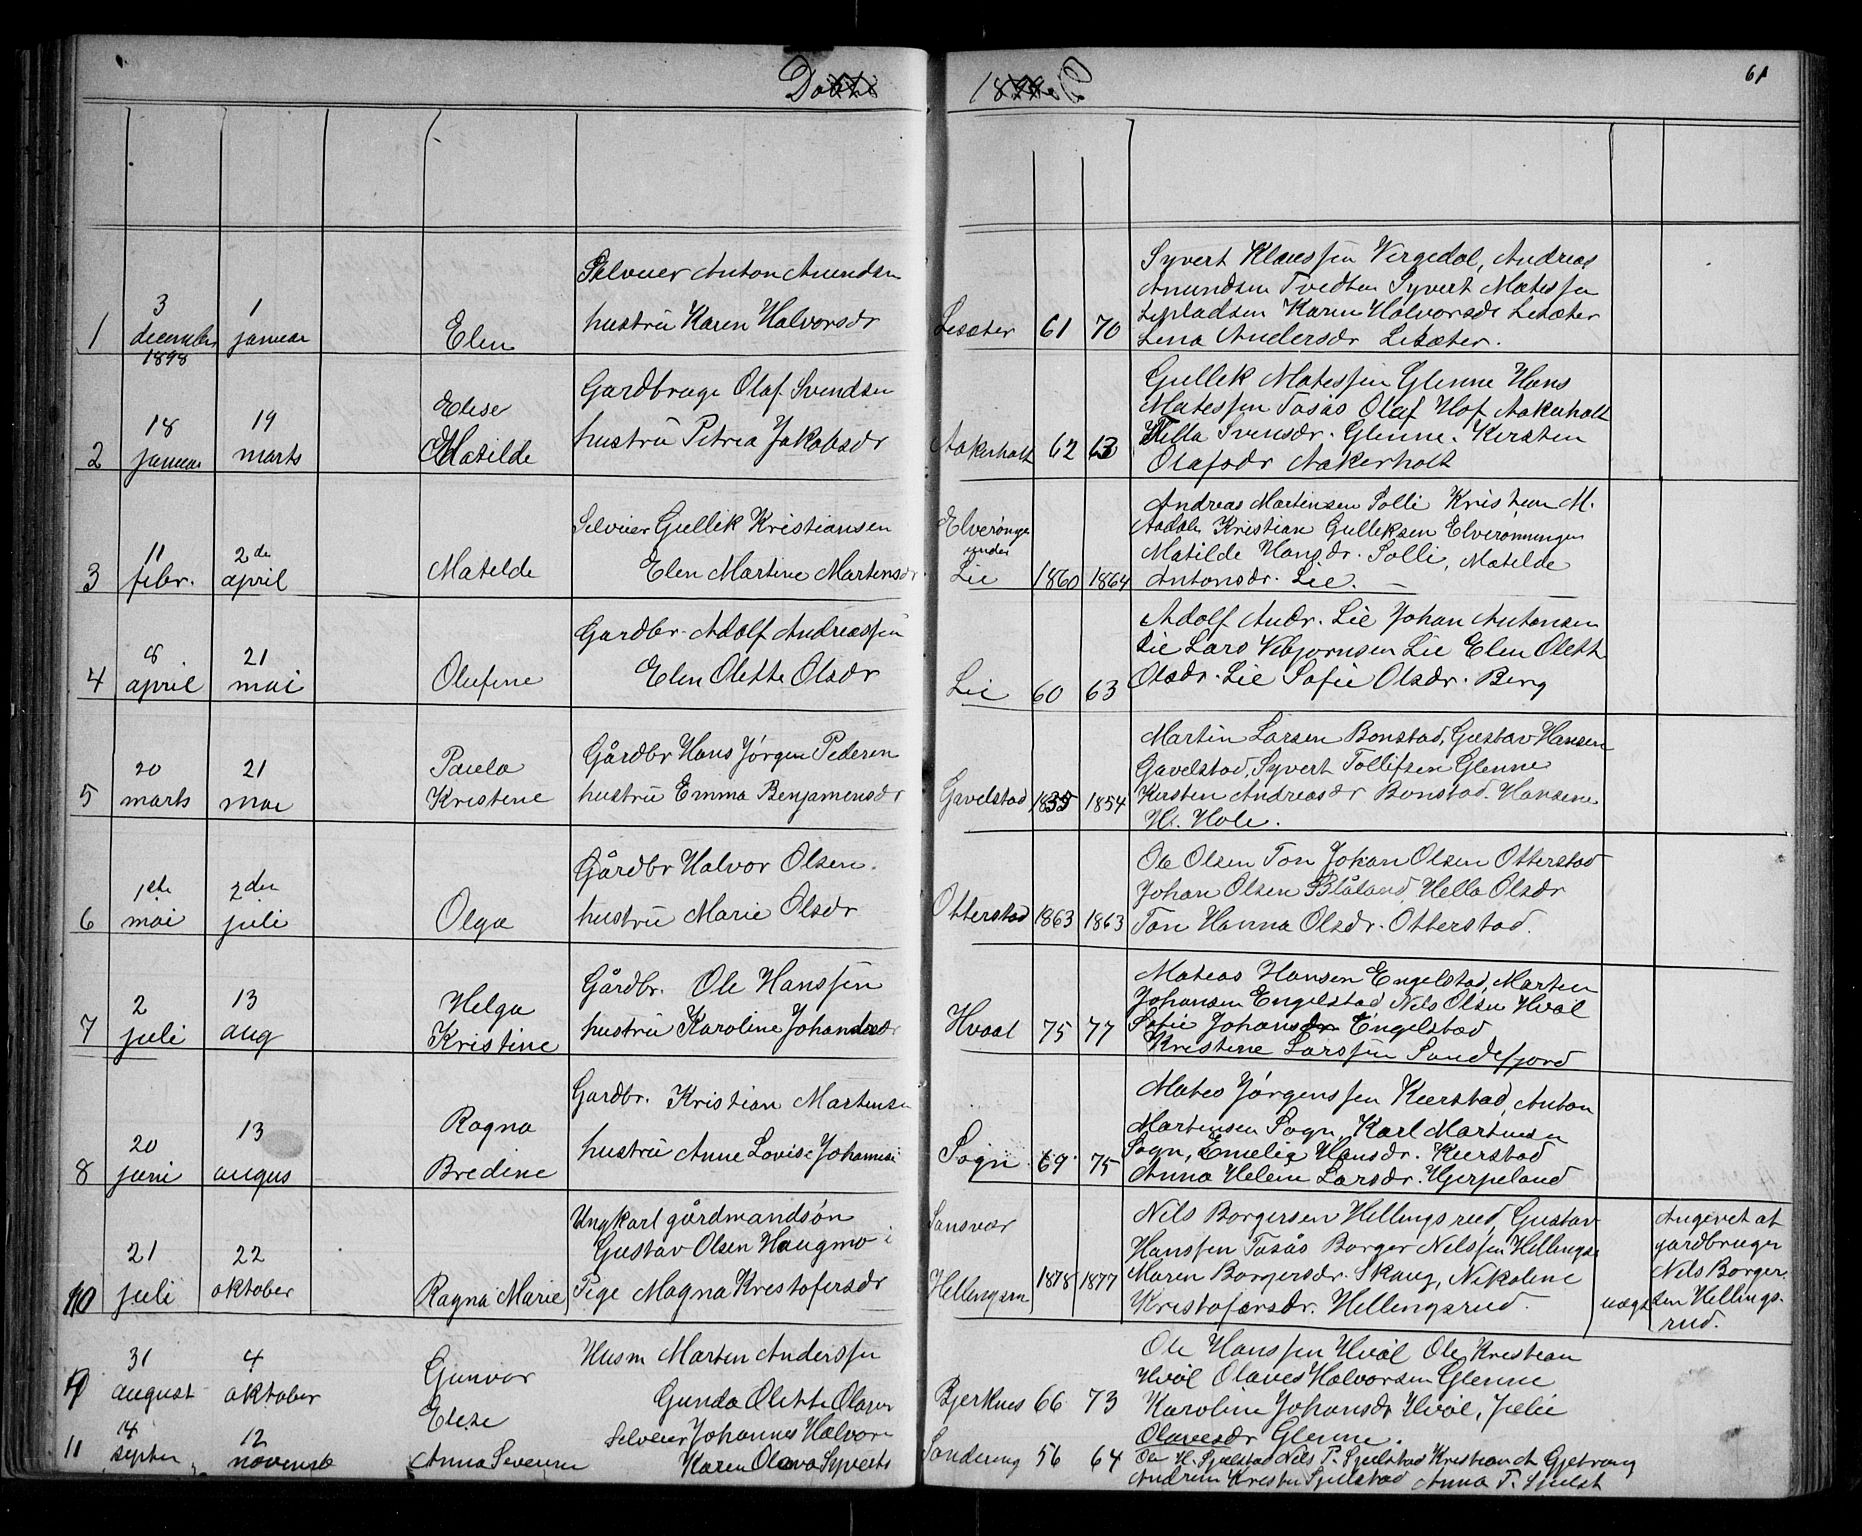 61
1
3
december
1898
1
januar
Elen
Selveier Anton Amundsen
hustru Karen Halvorsdr
Lesæter 61 70
Syvert Klaussen Vergedal, Andreas
Amundsen Tvedten Syvert Matessen
Karen Halvorsdr Lesæter
Lena Andersdr Lesæter.
2
18
januar
19
marts
Elese
Matilde
Gardbruge Olaf Svendsen
hustru Petrea Jakobsdr
Aakerholt 62 63
Gullek Matessen Glenne Hans
Matessen Tasås Olaf Hof Aakerholt
Hella Svensdr. Glenne. Kersten
Olafsdr Aakerholt
3
11
febr.
2de
april
Matelde
Selveier Gullek Kristiansen
Elen Martine Martensdr.
under
Lie 1860 1864
Andreas Martinsen Solli Kristian M.
Aadals Kristian Gulleksen Elverønningen
Matilde Hansdr. Solli, Matelde
Antonsdr. Lie.
4
8
april
21
mai
Olufine
Gardbr. Adolf Andreassen
Elen Olette Olsdr
Lie 60 63
Adolf Andr. Lie Johan Antonsen
Lie Lars Vebjørnsen Lie Elen Olett
Olsdr. Lie Sofie Olsdr. Berg
5
20
marts
21
mai
Paula
Kristene
Gårdbr Hans Jørgen Pedersen
hustru Emma Benjamensdr
Gavelstad 1855 1854
Martin Larsen Bonstad, Gustav Hansen
Gavelstad, Syvert Tollifsen Glenne
Kersten Andreasdr Bonstad. Hansene
H. Hole.
6
1ste
mai
2den
juli
Olga
Gårdbr Halvor Olsen.
hustru Marie Olsdr
Otterstad 1863 1863
Ole Olsen Ton Johan Olsen Otterstad
Johan Olsen Blåtand, Hella Olsdr
Ton Hanna Olsdr. Otterstad.
7
2
juli
13
aug
Helga
Kristine
Gårdbr. Ole Hanssen
hustru Karoline Johansdr
Hvaal 75 77
Mateas Hansen Engelstad, Marten
Johansen Engelstad Nils Olsen Hvål
Sofie Johansdr Engelstad
Kristine Larssen Sandefjord
8
20
juni
13
augus
Ragna
Bredine
Gardbr. Kristian Martensen
hustru Anne Lovise Johannes
Sogn 69 75
Mateo Jørgenssen Keerstad, Anton
Martensen Sogn, Karl Martensen
Sogn, Emelie Hansdr. Keerstad
Anna Helene Larsdr. Hjerpeland
10
21
juli
22
oktober
Ragna Marie
Ungkarl gårdmandsøn
Gustav Olsen Haugmo i
Pige Magna Krestofersdr
Sansvær
Hellingsru 1878 1877
Nils Borgersen Hellingsrud, Gustav
Hanssen Tasås Borger Nelssen Hellingsr
Maren Borgersdr. Skaug, Nekoline
Kristofersdr. Hellingsrud.
uægt
Angevet af
gardbruger
Nils Borger-
sen Hellings-
rud.
9
31
august
4
oktober
Gunvor
Elese
Husm Marten Anderssen
Gunda Olette Olavsr
Bjerknes 66 73
Ole Hanssen Hvål Ole Kristian
Hvål Olaves Halvorsen Glenne
Karoline Johansdr Hvål, Julie
Olavesdr Glenne.
11
4
septer
12
novemb
Anna Severine
Selveier Johannes Halvors
Karen Olava Syverts
56 64
Ole H. Sjulstad Nils P. Sjulstad Kristian A Gjetvang
Andrine Kristen Sjulstad Anna T. Sjulst